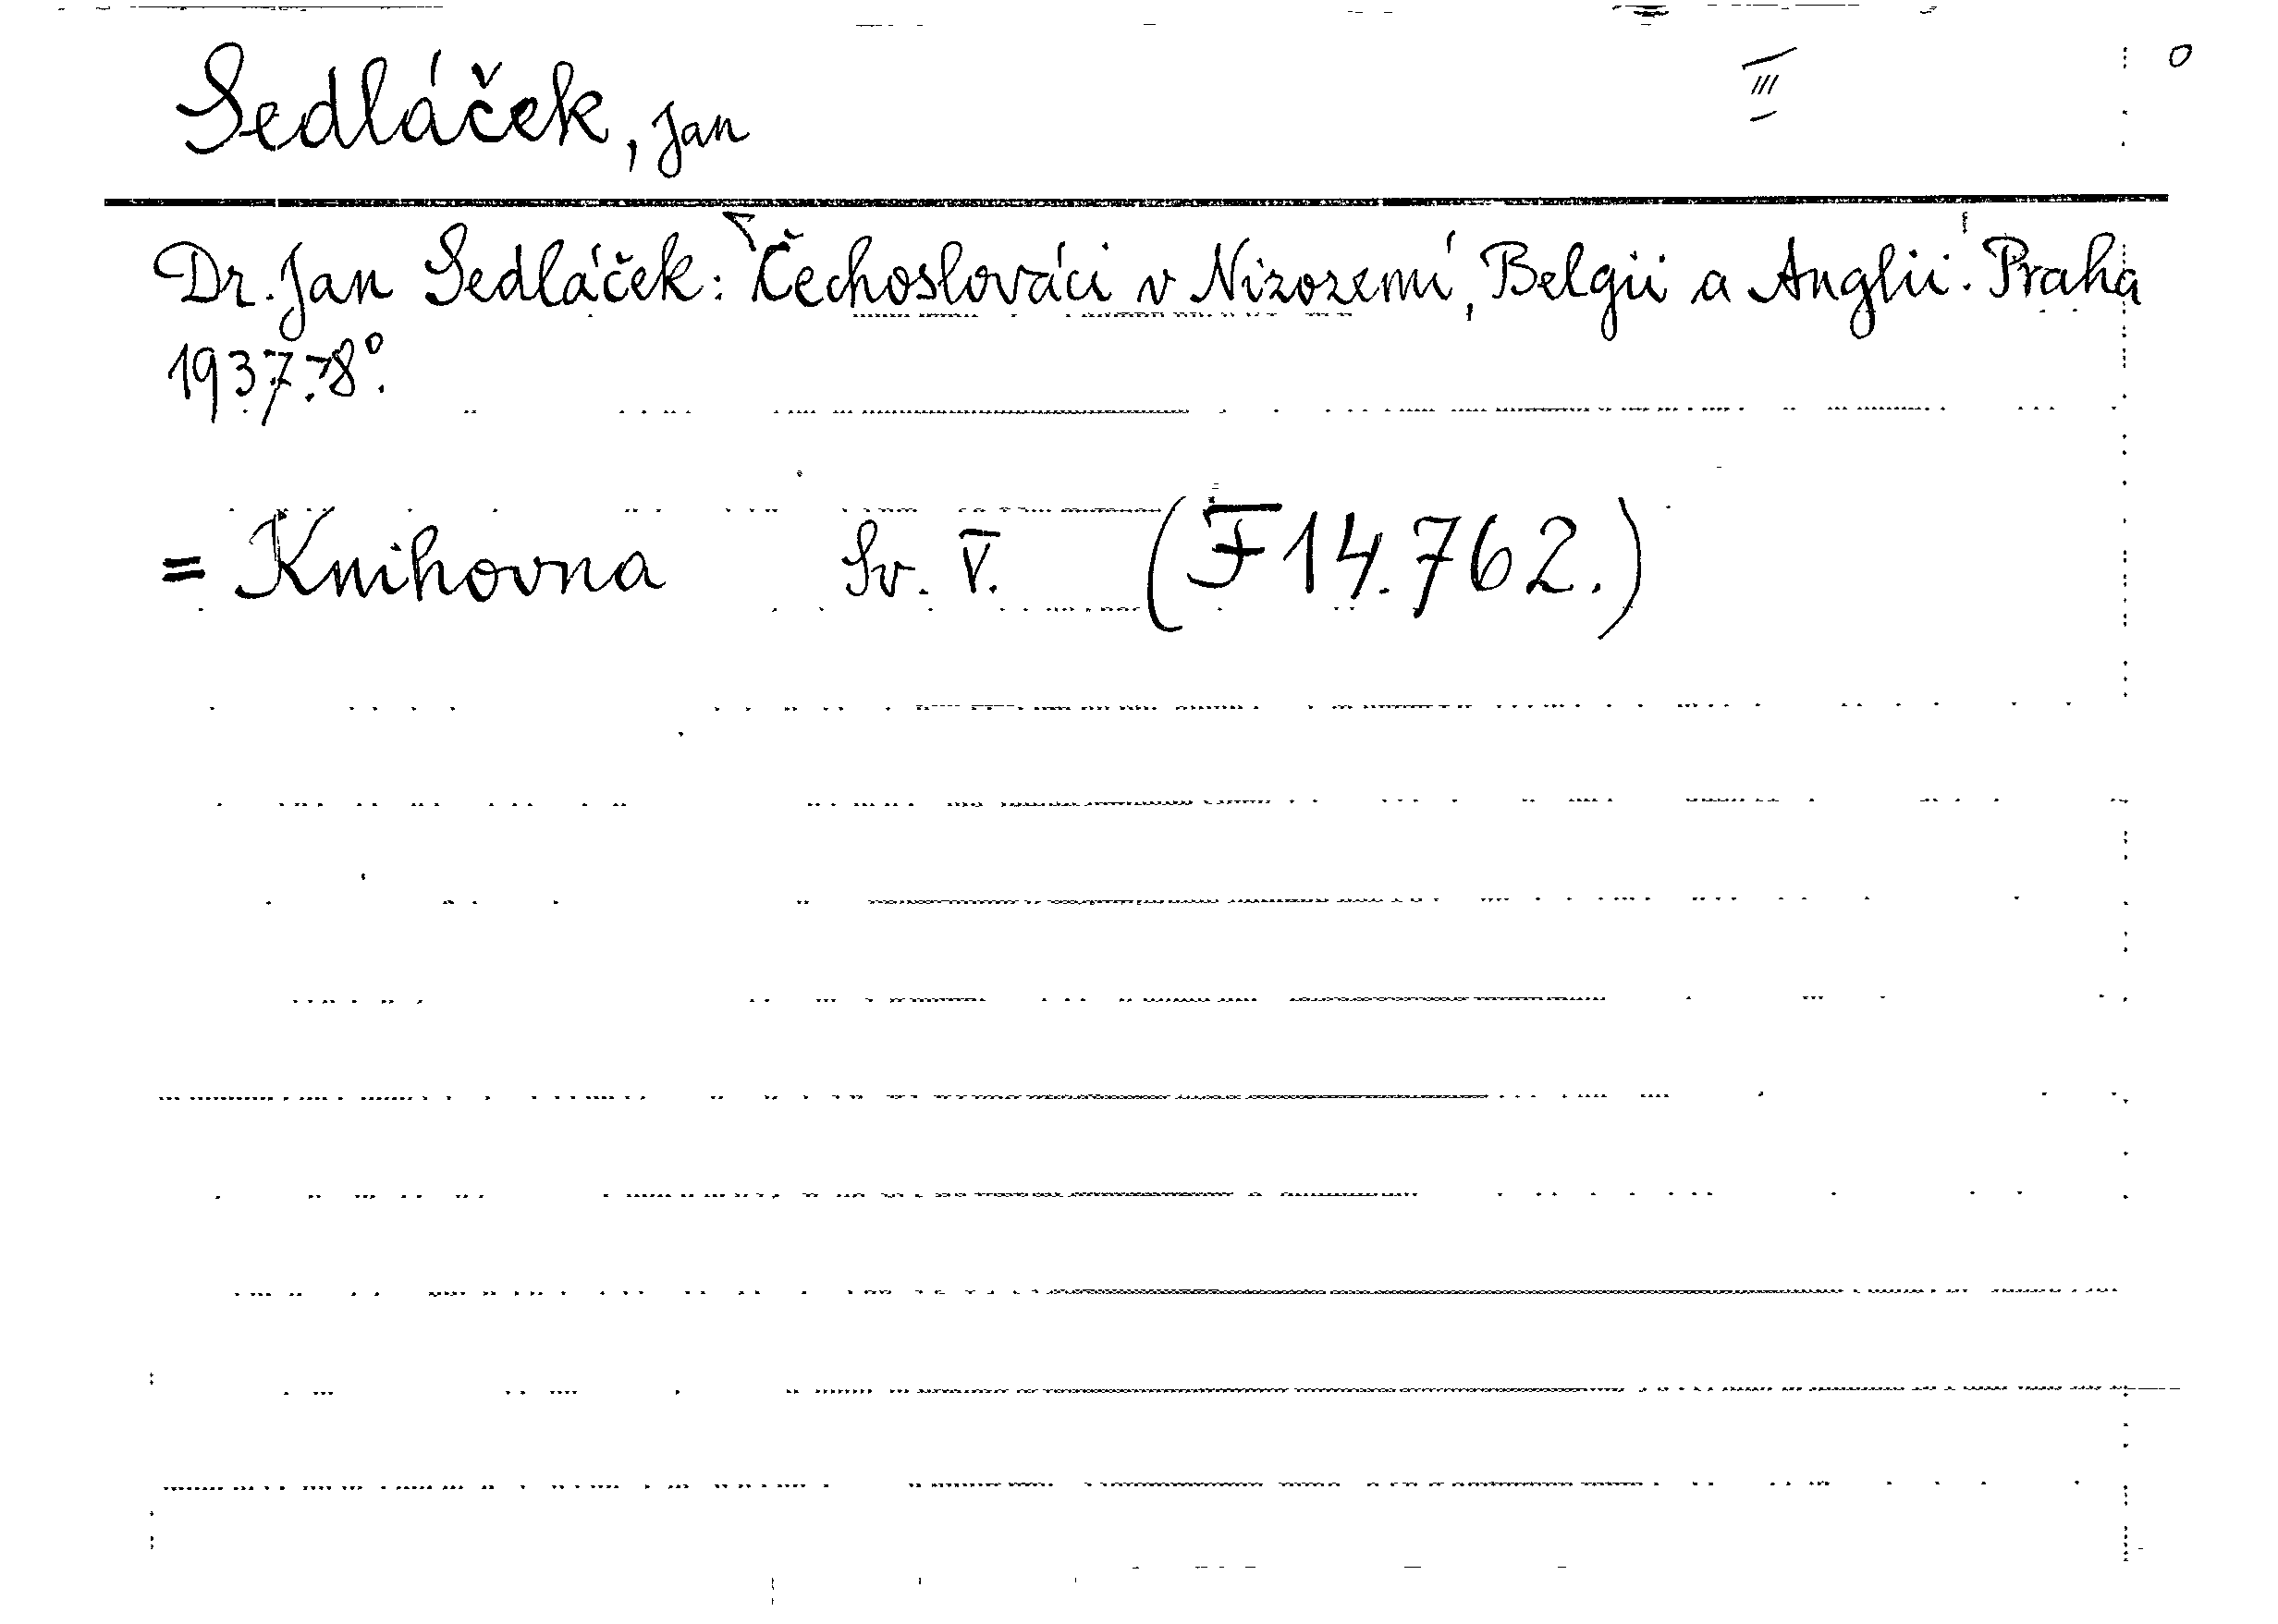 Sedláček, Jan III 0
Dr. Jan Sedláček: Čechoslováci v Nizozemí, Belgii a Anglii. Praha
1937. 8°.
= Knihovna Sv. V. (F 14.762.)